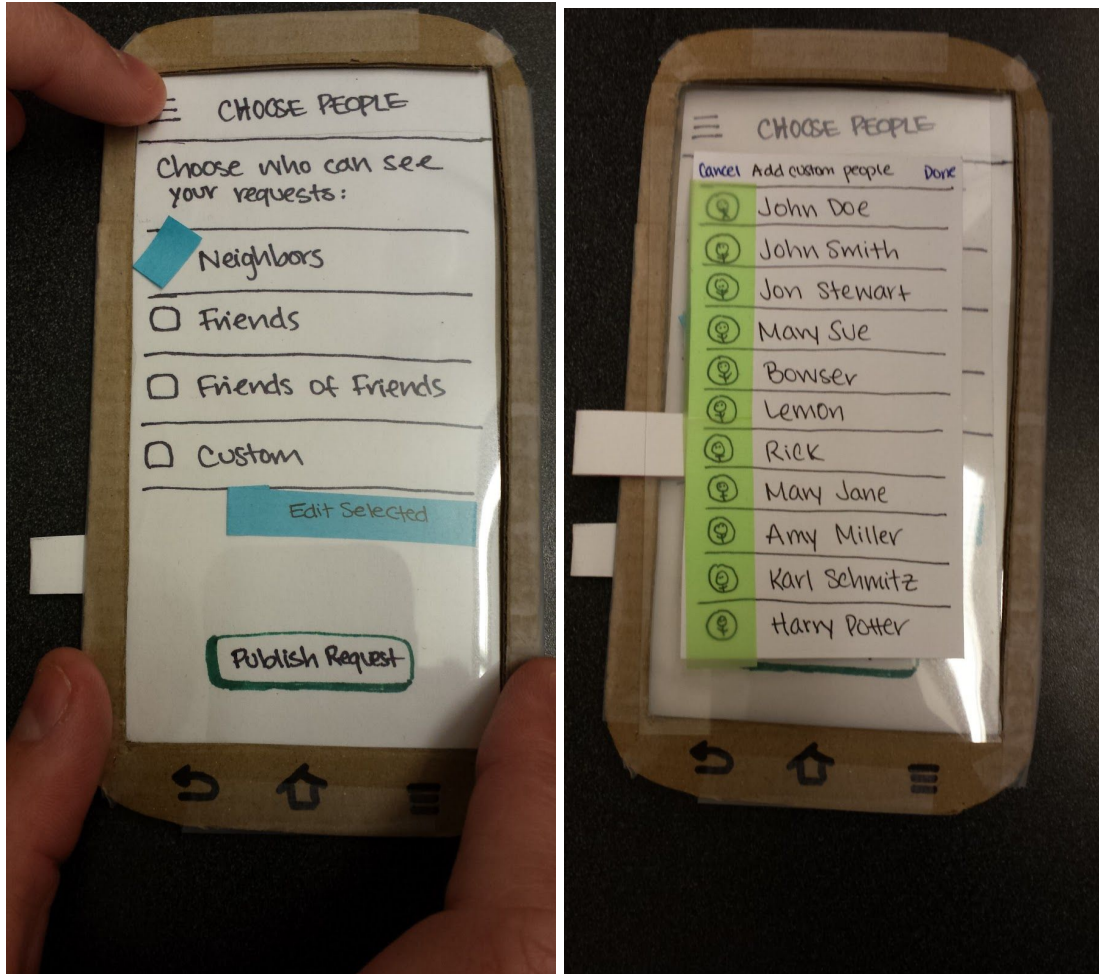 CHOOSE PEOPLE
Choose who can see
your requests:
Neighbors
Friends
Friends of Friends
Custom
Edit Selected
Publish Request
CHOOSE PEOPLE
Cancel Add custom people Done
John Doe
John Smith
Jon Stewart
Mary Sue
Bowser
Lemon
Rick
Mary Jane
Amy Miller
Karl Schmitz
Harry Potter